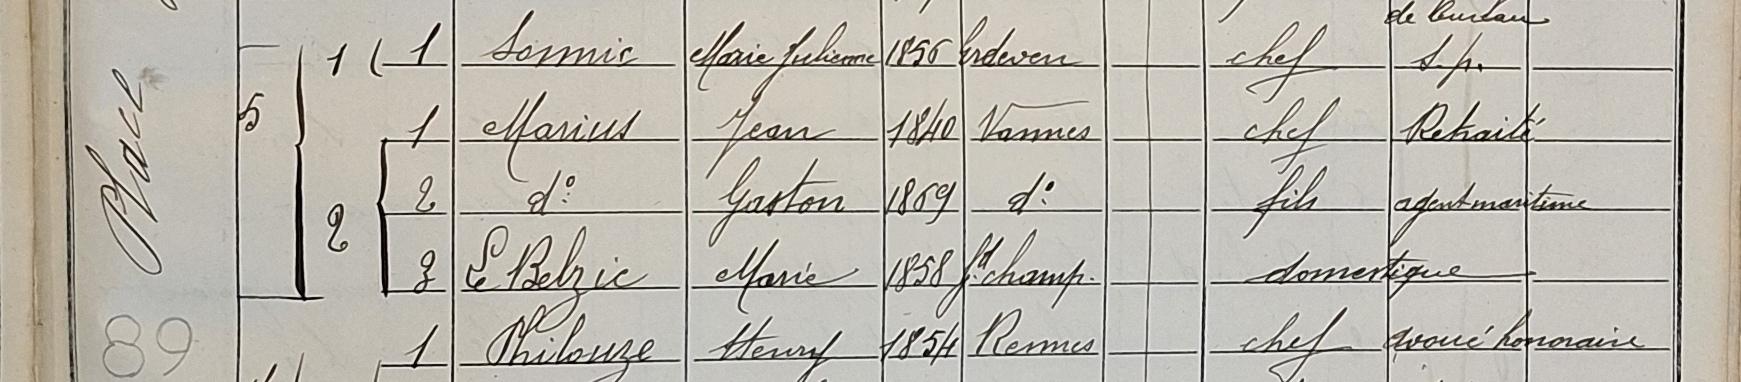 de bureau
1 1 Sonnic Marie Julienne 1856 Erdeven chef s.p.
Place 5
1 Marius Jean 1840 Vannes chef Retraité
2 2 do Gaston 1869 do fils agent maritime
3 Le Belzic Marie 1858 Gd champ. domestique
89
1 Philouze Henry 1854 Rennes chef avoué honoraire